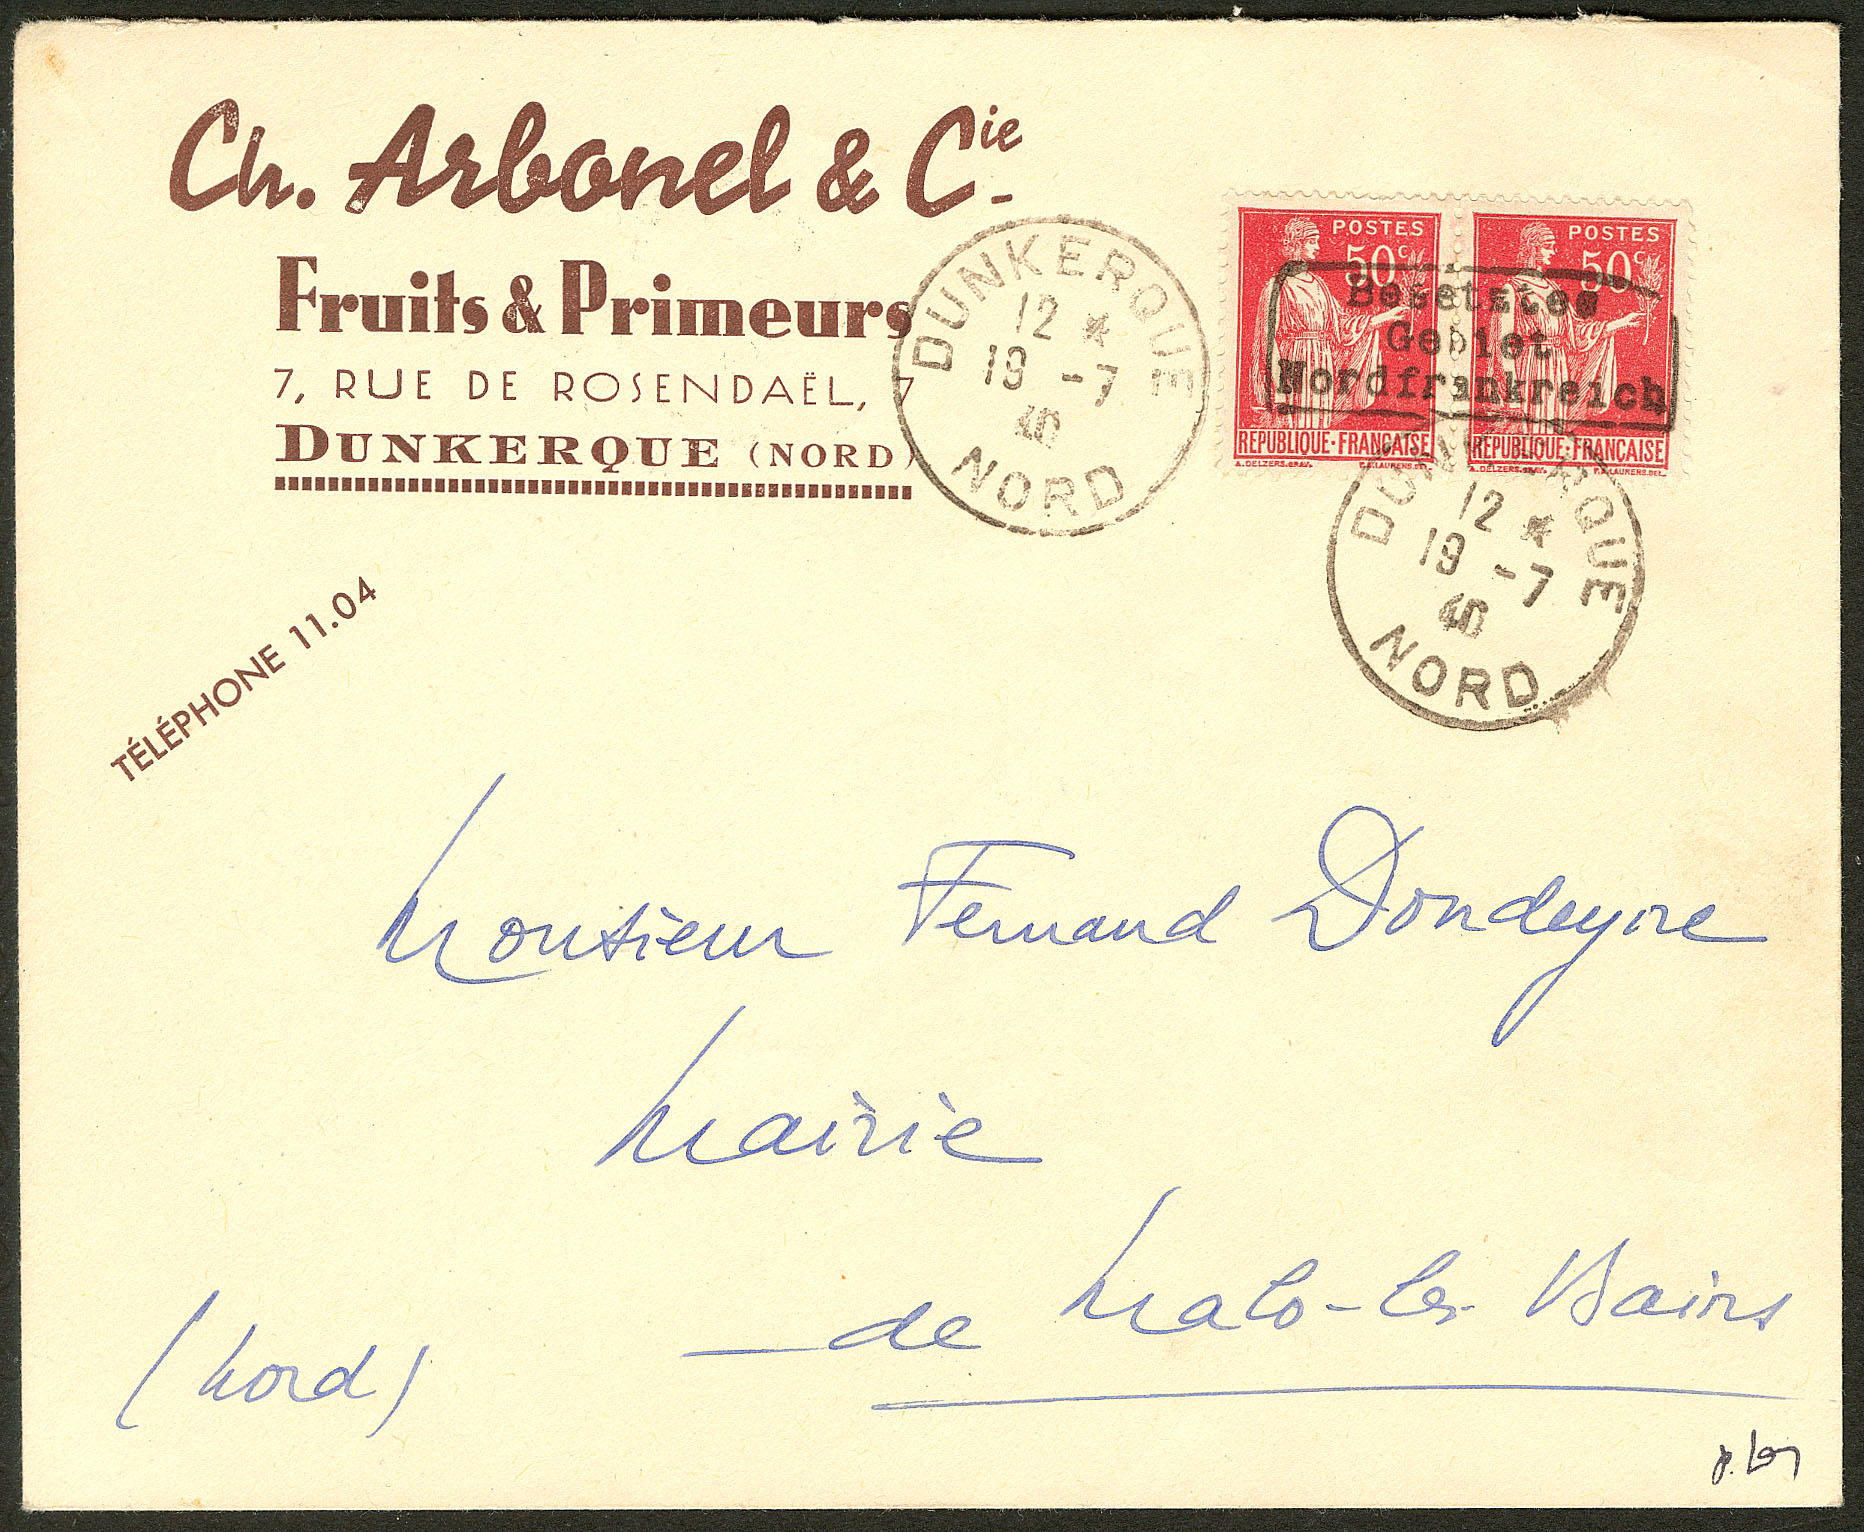 Ch. Arbonel & Cie
Fruits & Primeurs
7, RUE DE ROSENDAËL, 7
DUNKERQUE (NORD)
TÉLÉPHONE 11.04
DUNKERQUE
12 *
19 -7
40
NORD
POSTES
50c
REPUBLIQUE·FRANÇAISE
A.DELZERS.GRAV.
P.A.LAURENS.DEL.
POSTES
50c
REPUBLIQUE·FRANÇAISE
A.DELZERS.GRAV.
P.A.LAURENS.DEL.
Besetztes
Gebiet
Nordfrankreich
DUNKERQUE
12 *
19 -7
40
NORD
Monsieur Fernand Dondeyne
Mairie
de Malo-les-Bains
(Nord)